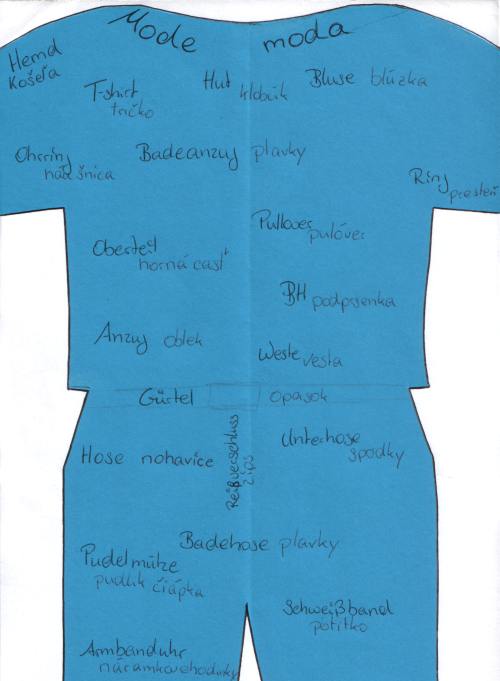 Mode moda
Hemd
Košeľa
T-shirt
tričko
Hut
klobúk
Bluse blúzka
Ohrring
náušnica
Badeanzug plavky
Ring
prsteň
Pullover
pulóver
Oberteil
horná časť
BH podprsenka
Anzug oblek
Weste
vesta
Gürtel opasok
Reißverschluss
zips
Unterhose
spodky
Hose nohavice
Badehose plavky
Pudelmütze
pudlík čiapka
Schweißband
potítko
Armbanduhr
náramkové hodinky